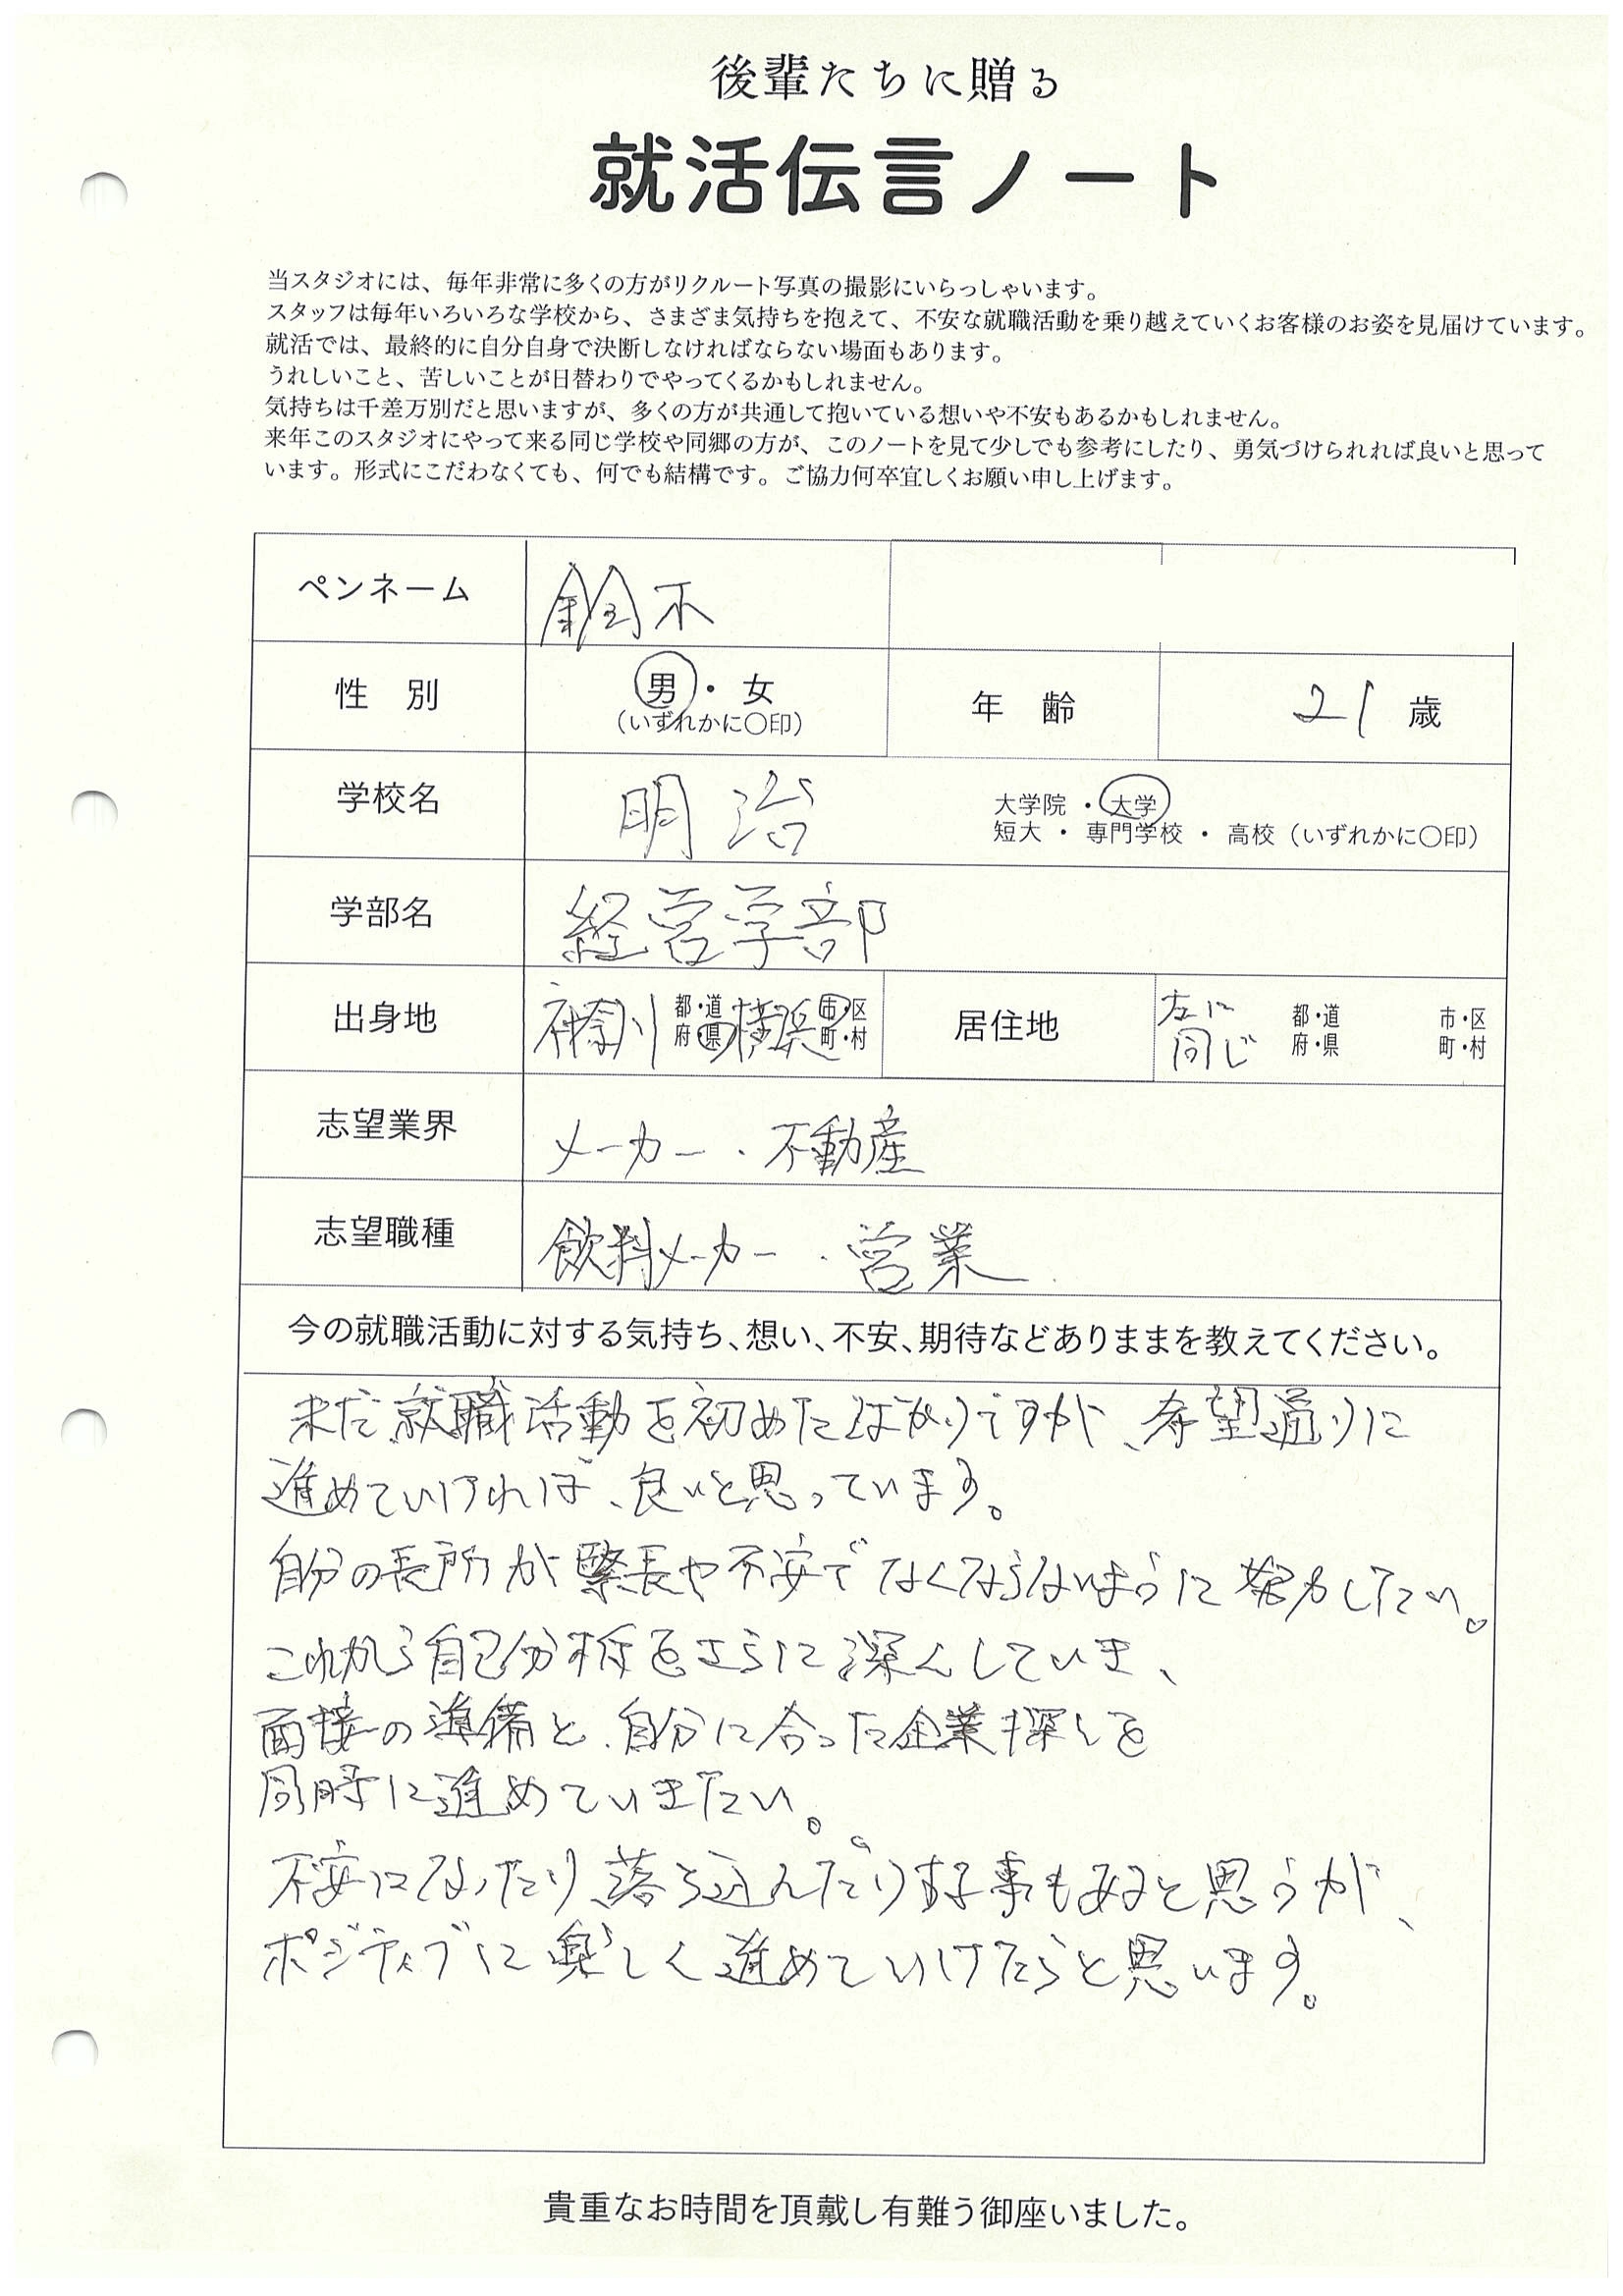 後輩たちに贈る
就活伝言ノート
当スタジオには、毎年非常に多くの方がリクルート写真の撮影にいらっしゃいます。
スタッフは毎年いろいろな学校から、さまざま気持ちを抱えて、不安な就職活動を乗り越えていくお客様のお姿を見届けています。
就活では、最終的に自分自身で決断しなければならない場面もあります。
うれしいこと、苦しいことが日替わりでやってくるかもしれません。
気持ちは千差万別だと思いますが、多くの方が共通して抱いている想いや不安もあるかもしれません。
来年このスタジオにやって来る同じ学校や同郷の方が、このノートを見て少しでも参考にしたり、勇気づけられれば良いと思って
います。形式にこだわなくても、何でも結構です。ご協力何卒宜しくお願い申し上げます。
ペンネーム 鈴木
性 別 男・女 (いずれかに〇印) 年 齢 21 歳
学校名 明治 大学院・大学
短大・専門学校・高校(いずれかに〇印)
学部名 経営学部
出身地 神奈川 都・道府・県 横浜 市・区町・村 居住地 左に同じ 都・道府・県 市・区町・村
志望業界 メーカー・不動産
志望職種 飲料メーカー・営業
今の就職活動に対する気持ち、想い、不安、期待などありままを教えてください。
未だ就職活動を初めたばかりですが、希望通りに
進めていければ、良いと思っています。
自分の長所が緊張や不安でなくならないように努力したい。
これから自己分析をさらに深くしていき、
面接の準備と、自分に合った企業探しを
同時に進めていきたい。
不安になったり、落ち込んだりする事もあると思うが、
ポジティブに楽しく進めていけたらと思います。
貴重なお時間を頂戴し有難う御座いました。